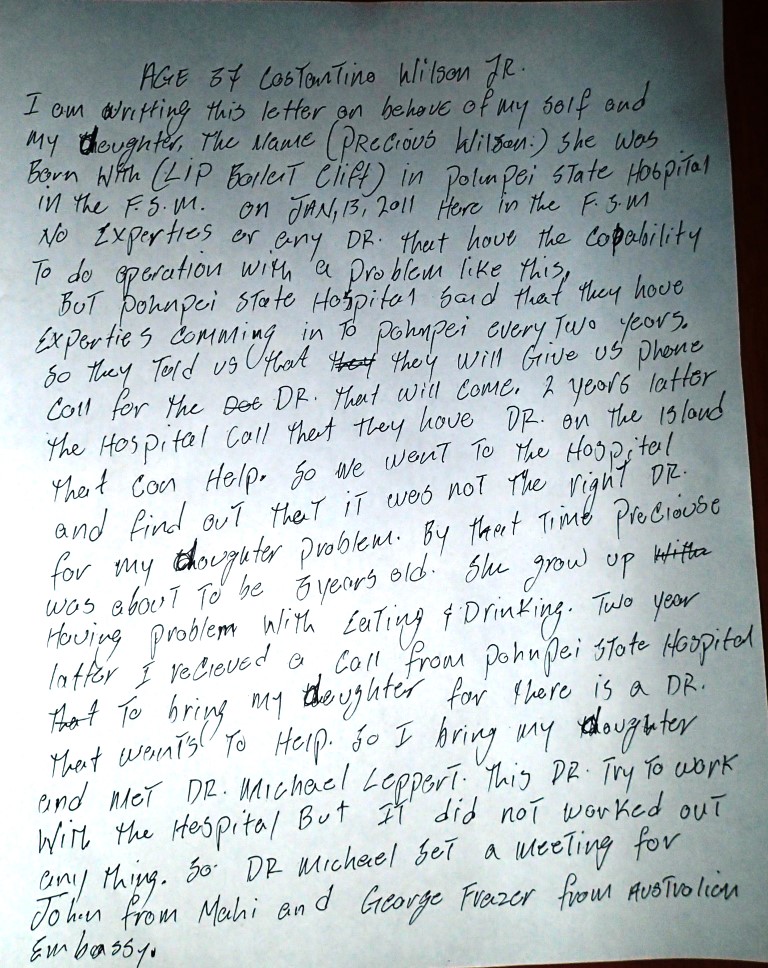 AGE 37 Costantino Wilson JR.
I am writting this letter on behave of my self and
my daughter, The Name (Precious Wilson.) she was
Born With (LIP Bailert Clift) in Pohnpei State Hospital
in the F.S.M. on JAN, 13, 2011 Here in the F.S.M
No Experties or any DR. that have the Capability
To do operation with a problem like this,
But pohnpei State Hospital said that they have
Experties comming in To pohnpei every Two years.
so they Told us that they will Give us phone
Call for the DR. that will come. 2 years latter
the Hospital Call that they have DR. on the Island
that Can Help. So we went To the Hospital
and find out that it was not The right DR.
for my daughter problem. By that Time Preciouse
was about To be 3 years old. She grow up
Having problem With Eating & Drinking. Two year
latter I recieved a Call from pohnpei State Hospital
To bring my daughter for there is a DR.
that wants To Help. So I bring my daughter
and met DR. Michael Leppert. This DR. Try To work
With the Hospital But IT did not worked out
any thing. So DR Michael set a meeting for
John from Mahi and George Frazer from Australian
Embassy.